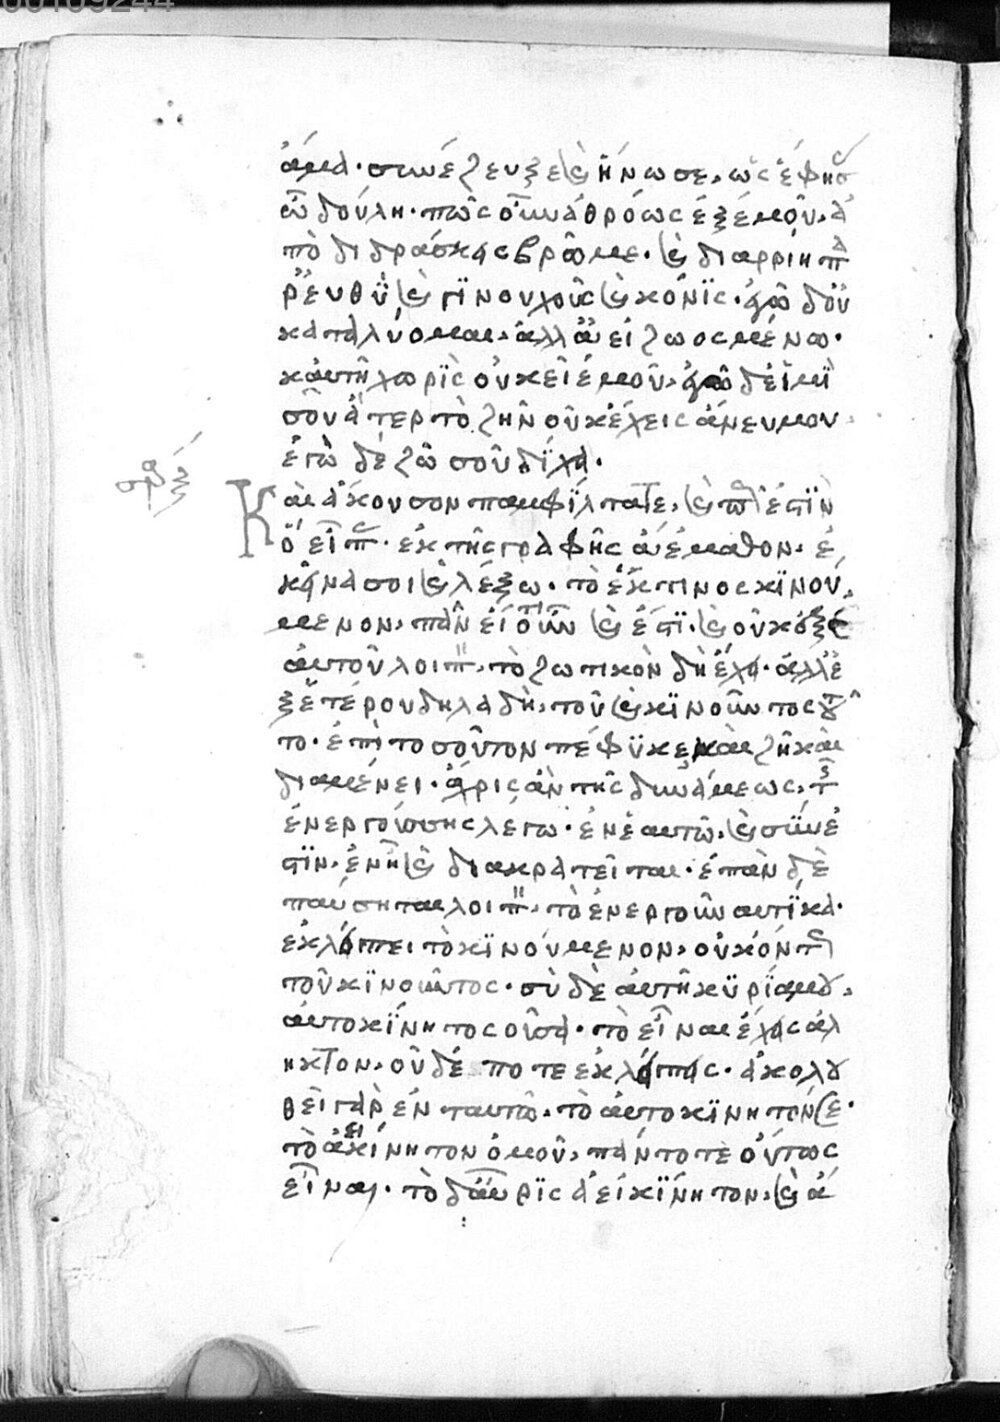 00109244
ἅμα· συνέζευξε καὶ ἥνωσε, ὡς ἔφησ
ὦ δούλη· πῶς οὖν ἀθρόως ἐξ ἐμοῦ, ἀ
πὸ διδράσκεις βρῶμε· καὶ διαρρίη π
ῥεύθυ καὶ γίνου χοῦς καὶ κόνις· ἐγὼ δ' οὐ
καταλύομαι, ἀλλ' ἀεὶ ζῶσα μένω·
καὐτὴ χωρὶς οὐκ εἶ ἐμοῦ, ἐγὼ δ' εἰμὶ
σοῦ ἄτερ τὸ ζῆν οὐκ ἔχεις ἄνευ μου
ἐγὼ δὲ ζῶ σοῦ δίχα·
Καὶ ἄκουσον παμφίλτατε, καὶ π ἐστὶν
ὃ εἶπ· ἐκ τῆς γραφῆς ἃ ἔμαθον, ἐ
κεῖνά σοι καὶ λέξω· τὸ ἔκ τινος κινού
μενον, πᾶν εἴ τι οὖν καὶ ἔστι· καὶ οὐκ ἐξ
αὐτοῦ λοιπ, τὸ ζωτικὸν δὴ ἔχει· ἀλλ' ἐ
ξ ἑτέρου δηλαδὴ, τοῦ καὶ κινοῦντος τοῦ
το· ἐπὶ τοσοῦτον πέφυκε καὶ ζῇ καὶ
διαμένει· ἄχρις ἂν τῆς δυνάμεως, τ
ἐνεργούσης λέγω· ἐν ἑαυτῷ, καὶ σύνε
στιν, ἐν ᾗ καὶ διακρατεῖται· ἐπὰν δὲ
παύσηται λοιπ, τὸ ἐνεργοῦν αὐτίκα·
ἐκλείπει τὸ κινούμενον, οὐκ ὄντ
τοῦ κινοῦντος· σὺ δὲ αὐτὴ κυρία μου,
αὐτοκίνητος οὖσα· τὸ εἶναι ἔχεις ἄλ
ηκτον, οὐδέποτε ἐκλείπεις· ἀκολου
θεῖ γὰρ ἐν ταυτῷ, τὸ αὐτοκίνητόν σε·
τὸ ἀεικίνητον ὁμοῦ, πάντοτε οὕτως
εἶναι· τὸ δ' αὖ ρις ἀεικίνητον, καὶ ἀ